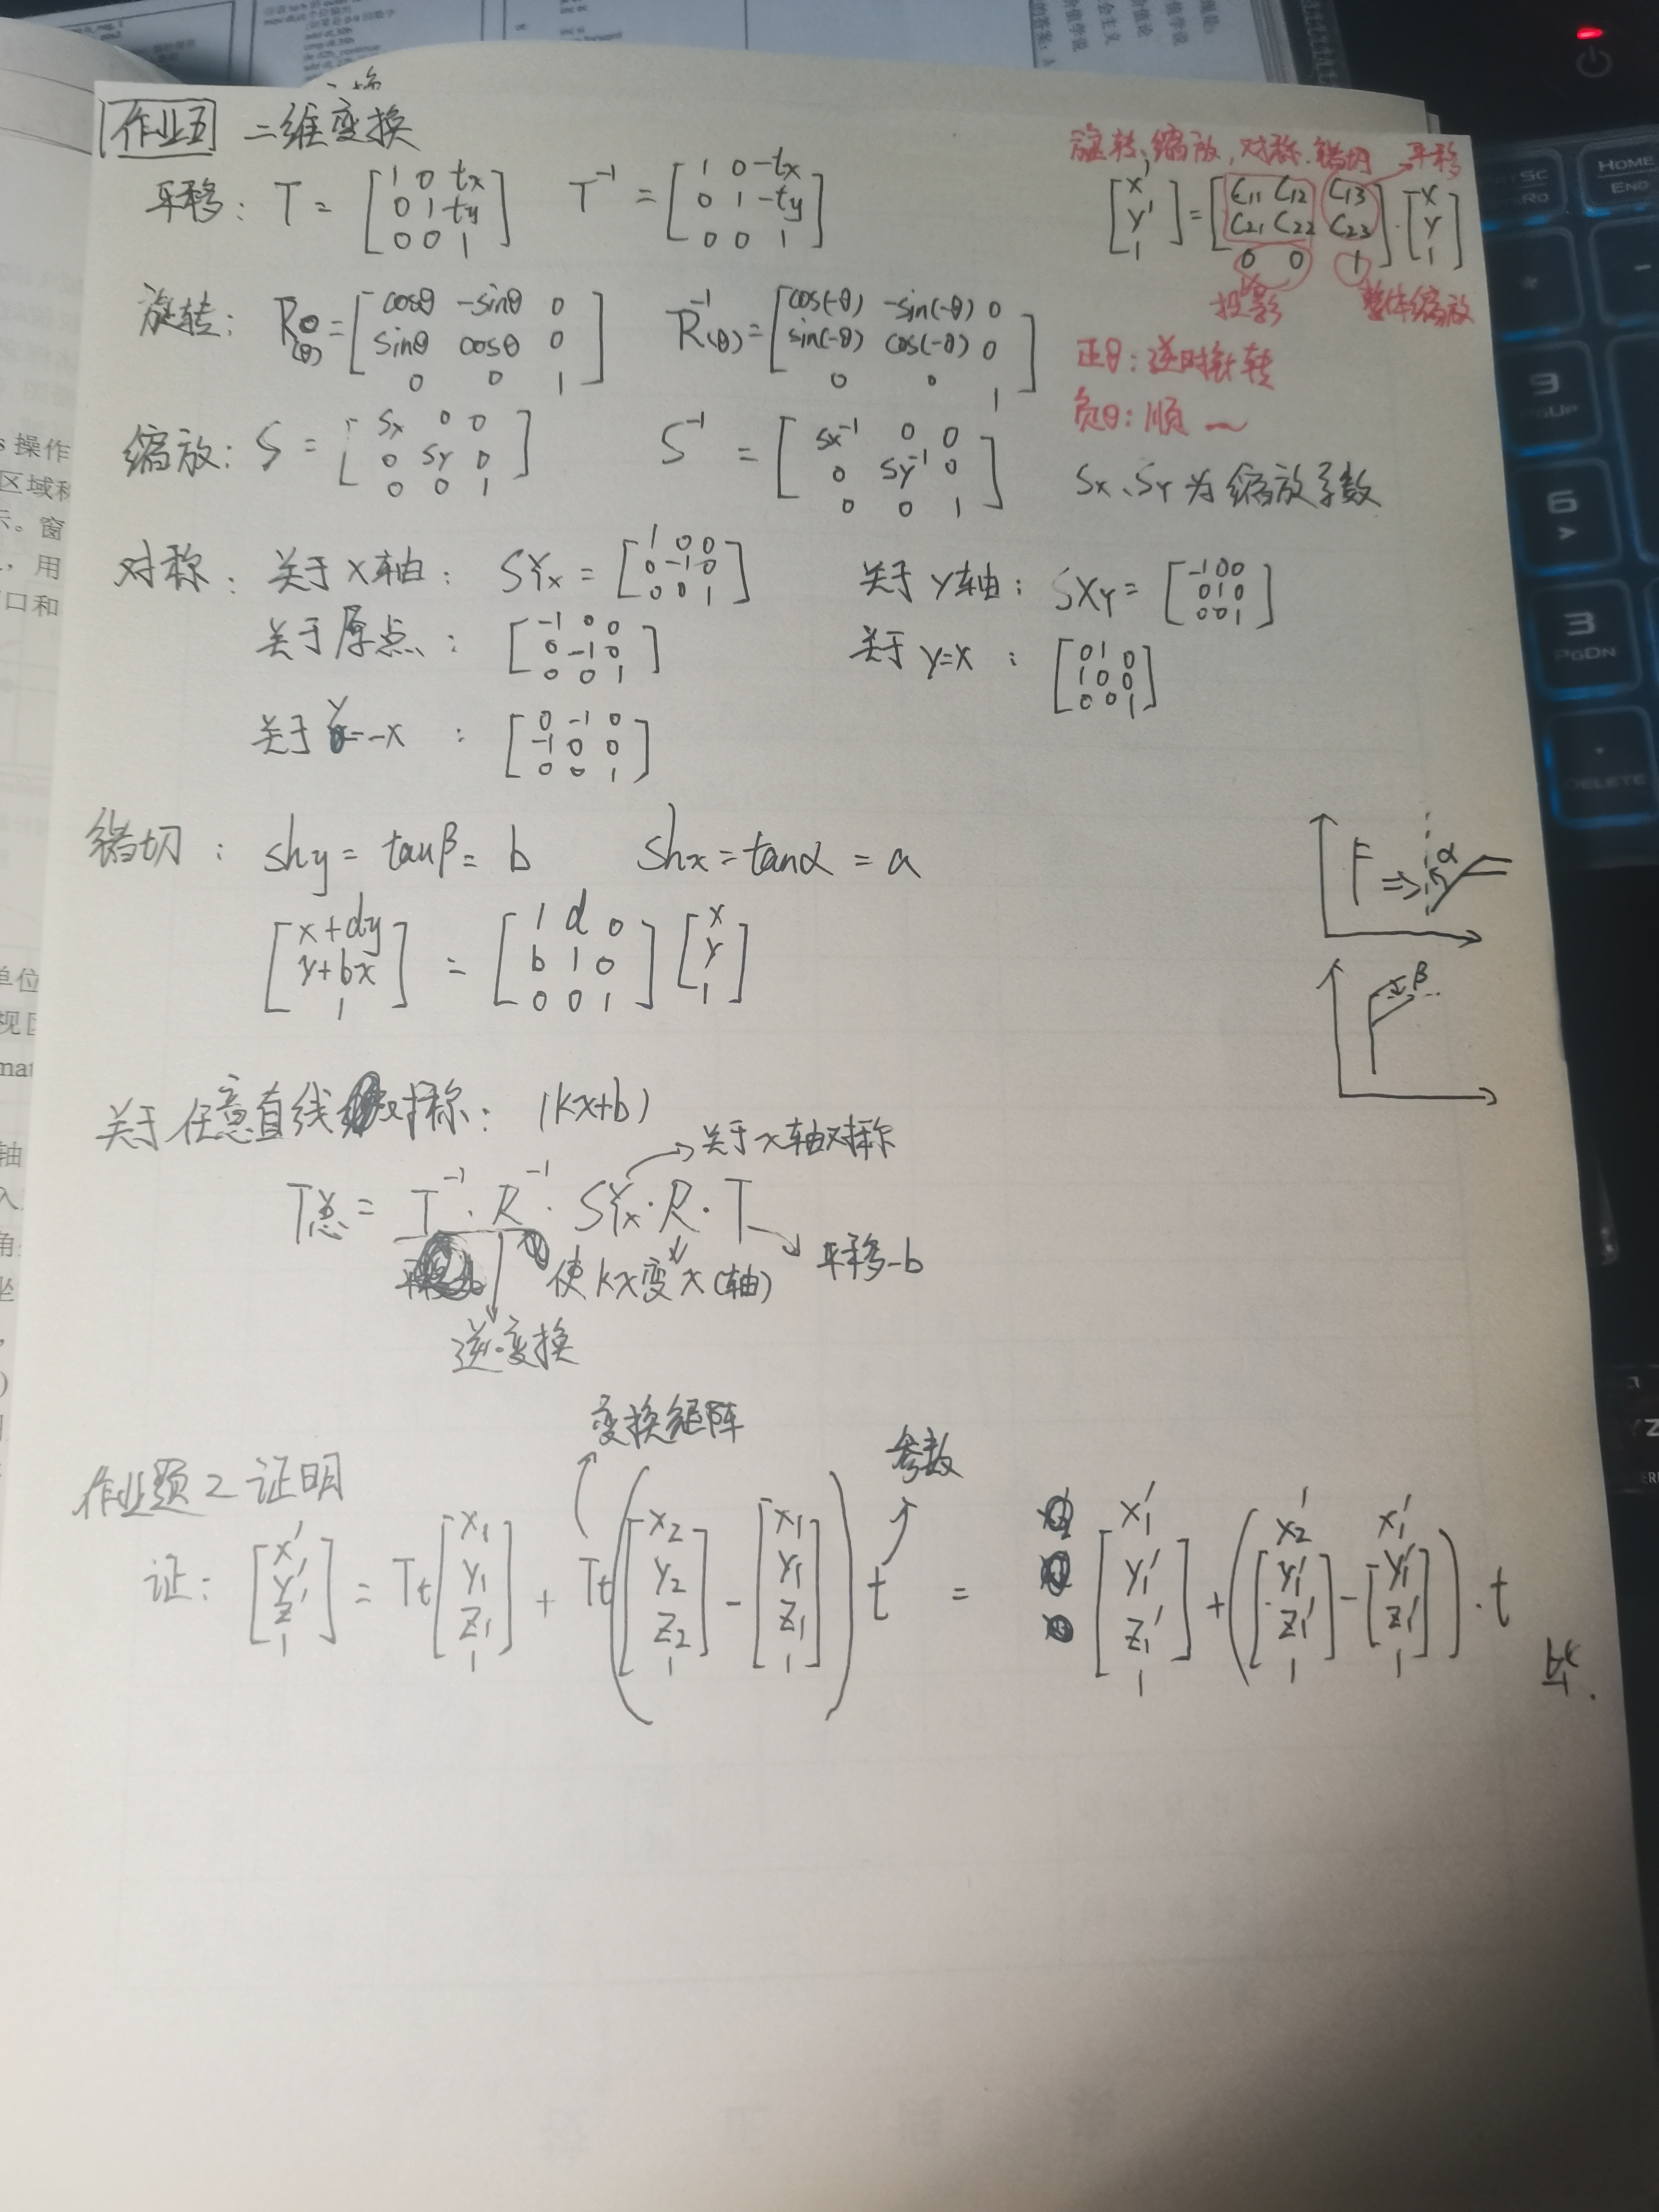 作业五 二维变换
平移: T = [1 0 tx; 0 1 ty; 0 0 1] T⁻¹ = [1 0 -tx; 0 1 -ty; 0 0 1]
旋转、缩放,对称.错切 → 平移
[x'; y'; 1] = [C11 C12 C13; C21 C22 C23; 0 0 1]·[x; y; 1]
投影 整体缩放
旋转: R(θ) = [cosθ -sinθ 0; sinθ cosθ 0; 0 0 1] R⁻¹(θ) = [cos(-θ) -sin(-θ) 0; sin(-θ) cos(-θ) 0; 0 0 1]
正θ: 逆时针转
负θ: 顺 ~
缩放: S = [Sx 0 0; 0 Sy 0; 0 0 1] S⁻¹ = [Sx⁻¹ 0 0; 0 Sy⁻¹ 0; 0 0 1] Sx、Sy 为缩放系数
对称: 关于X轴: SYx = [1 0 0; 0 -1 0; 0 0 1] 关于Y轴: SXY = [-1 0 0; 0 1 0; 0 0 1]
关于原点: [-1 0 0; 0 -1 0; 0 0 1] 关于 y=x : [0 1 0; 1 0 0; 0 0 1]
关于 y=-x : [0 -1 0; -1 0 0; 0 0 1]
错切: shy = tanβ = b shx = tanα = a
[x+dy; y+bx; 1] = [1 d 0; b 1 0; 0 0 1] [x; y; 1]
F ⇒ α
β
关于任意直线对称: (kx+b)
→ 关于x轴对称
T总 = T⁻¹·R⁻¹·SYx·R·T
使kx变x(轴) 平移-b
逆变换
变换矩阵 参数
作业题2证明
证: [x'; y'; z'; 1] = Tt[x1; y1; z1; 1] + Tt([x2; y2; z2; 1] - [x1; y1; z1; 1])t = [x1'; y1'; z1'; 1] + ([x2'; y1'; z1'; 1] - [x1'; y1'; z1'; 1])·t
毕.
HOME
END
9
PGUP
6
3
PGDN
DELETE